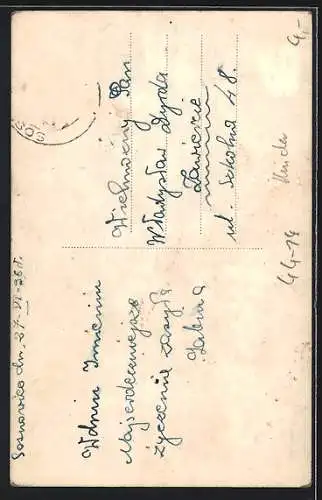 Sosnowice dn. 27-VI-36 r.
W dniu Imienin
Najserdeczniejsze
życzenie zasyła
Sabina
Wielmożny Pan
Władysław Dyrda
Zawiercie
ul. Szkolna 48.
Kinder
44-14
4,-